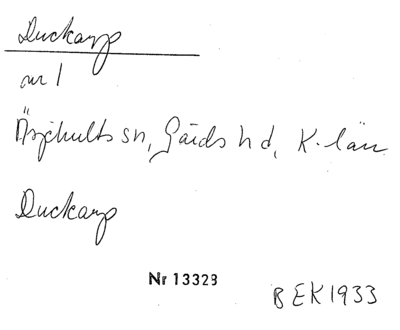 Duckarp
nr 1
Äsphults sn, Gärds hd, K-län
Duckarp
Nr
BEK1933